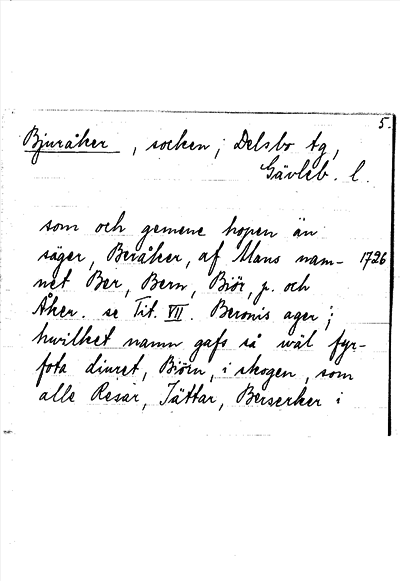 5.
Bjuråker, socken; Delsbo tg,
Gävleb. l.
som och gemene hopen än
säger, Beråker, af Mans nam- 1726
net Ber, Bern, Biör, p. och
Åker. se Tit. VII. Beronis ager;
hwilket namn gafs så wäl fyr-
fota diuret, Biörn, i skogen, som
alle Resar, Jättar, Berserker i